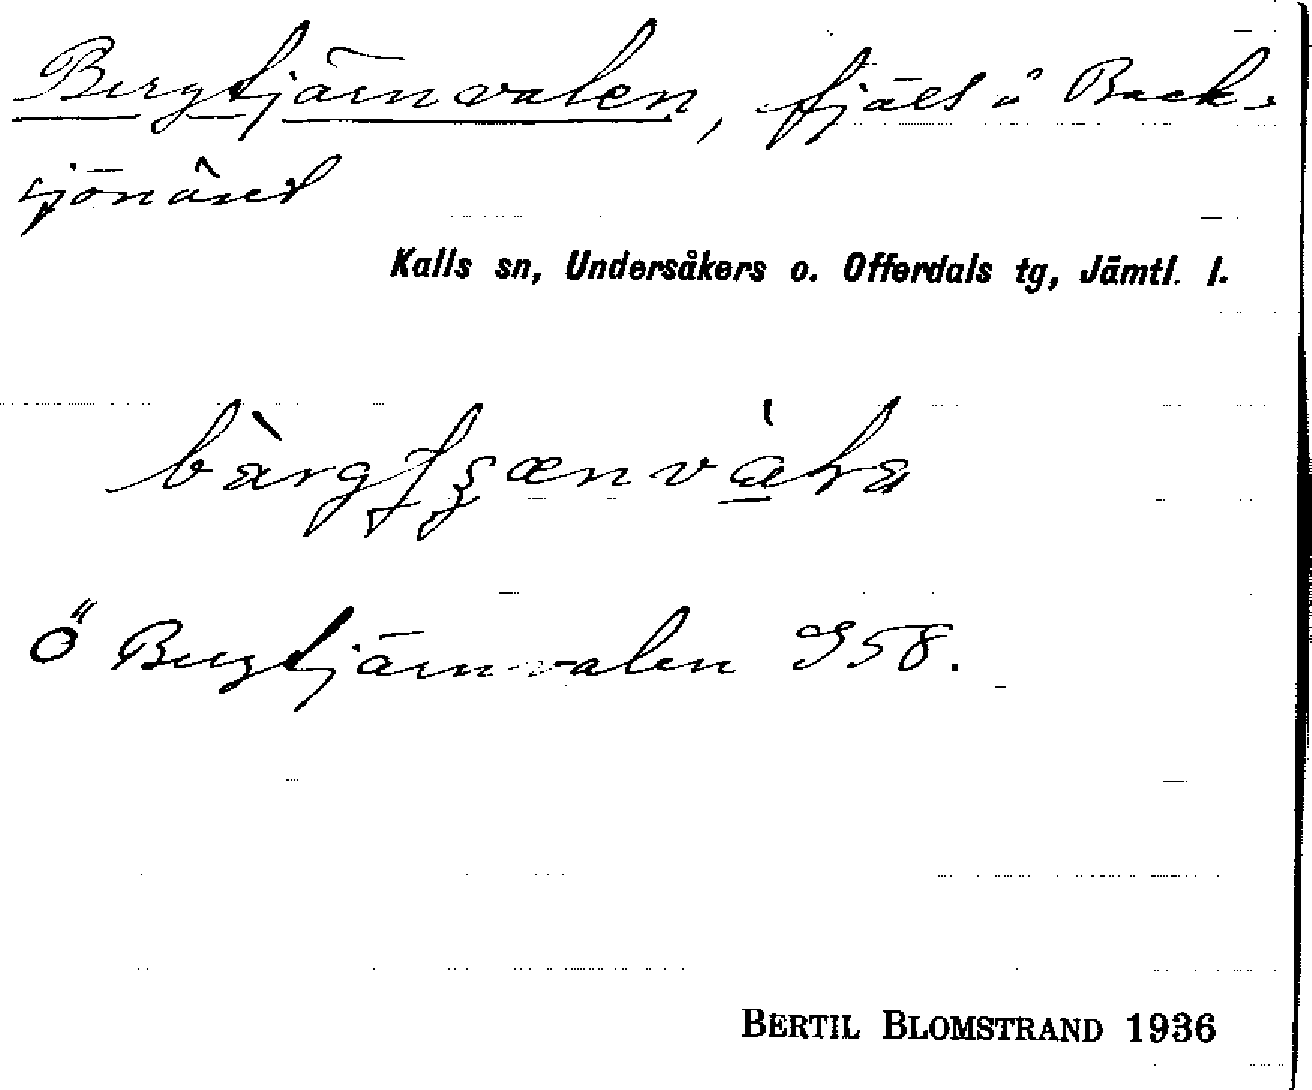 Bergtjärnvalen, fjäll å Back-
sjönäset
Kalls sn, Undersåkers o. Offerdals tg, Jämtl. l.
Ö Bergtjärnvalen 958.
BERTIL BLOMSTRAND 1936